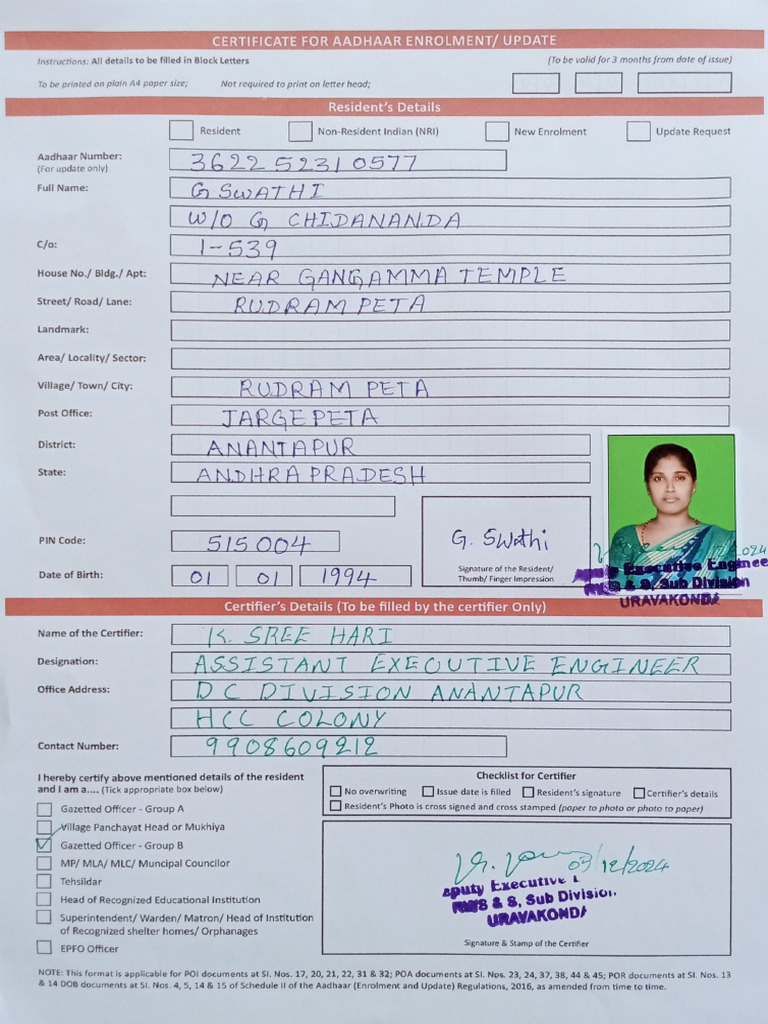 CERTIFICATE FOR AADHAAR ENROLMENT/ UPDATE
Instructions: All details to be filled in Block Letters
(To be valid for 3 months from date of issue)
To be printed on plain A4 paper size; Not required to print on letter head;
Resident's Details
Resident Non-Resident Indian (NRI) New Enrolment Update Request
Aadhaar Number: 3622 5231 0577
(For update only)
Full Name: G SWATHI
W/O G CHIDANANDA
C/o: 1-539
House No./ Bldg./ Apt: NEAR GANGAMMA TEMPLE
Street/ Road/ Lane: RUDRAM PETA
Landmark:
Area/ Locality/ Sector:
Village/ Town/ City: RUDRAM PETA
Post Office: JARGEPETA
District: ANANTAPUR
State: ANDHRA PRADESH
PIN Code: 515 004
G. Swathi
Signature of the Resident/
Thumb/ Finger Impression
Date of Birth: 01 01 1994
Executive Enginee
& S, Sub Division
URAVAKONDA
Certifier's Details (To be filled by the certifier Only)
Name of the Certifier: K. SREE HARI
Designation: ASSISTANT EXECUTIVE ENGINEER
Office Address: DC DIVISION ANANTAPUR
HCC COLONY
Contact Number: 9908609212
I hereby certify above mentioned details of the resident
and I am a.... (Tick appropriate box below)
Gazetted Officer - Group A
Village Panchayat Head or Mukhiya
Gazetted Officer - Group B
MP/ MLA/ MLC/ Muncipal Councilor
Tehsildar
Head of Recognized Educational Institution
Superintendent/ Warden/ Matron/ Head of Institution
of Recognized shelter homes/ Orphanages
EPFO Officer
Checklist for Certifier
No overwriting Issue date is filled Resident's signature Certifier's details
Resident's Photo is cross signed and cross stamped (paper to photo or photo to paper)
03/12/2024
eputy Executive
RWS & S, Sub Division,
URAVAKONDA
Signature & Stamp of the Certifier
NOTE: This format is applicable for POI documents at Sl. Nos. 17, 20, 21, 22, 31 & 32; POA documents at Sl. Nos. 23, 24, 37, 38, 44 & 45; POR documents at Sl. Nos. 13
& 14 DOB documents at Sl. Nos. 4, 5, 14 & 15 of Schedule II of the Aadhaar (Enrolment and Update) Regulations, 2016, as amended from time to time.